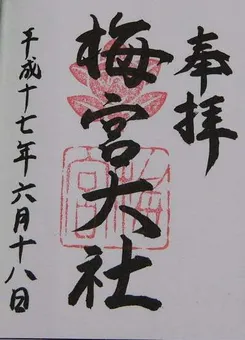 奉拝
梅宮大社
平成十七年六月十八日
梅宮